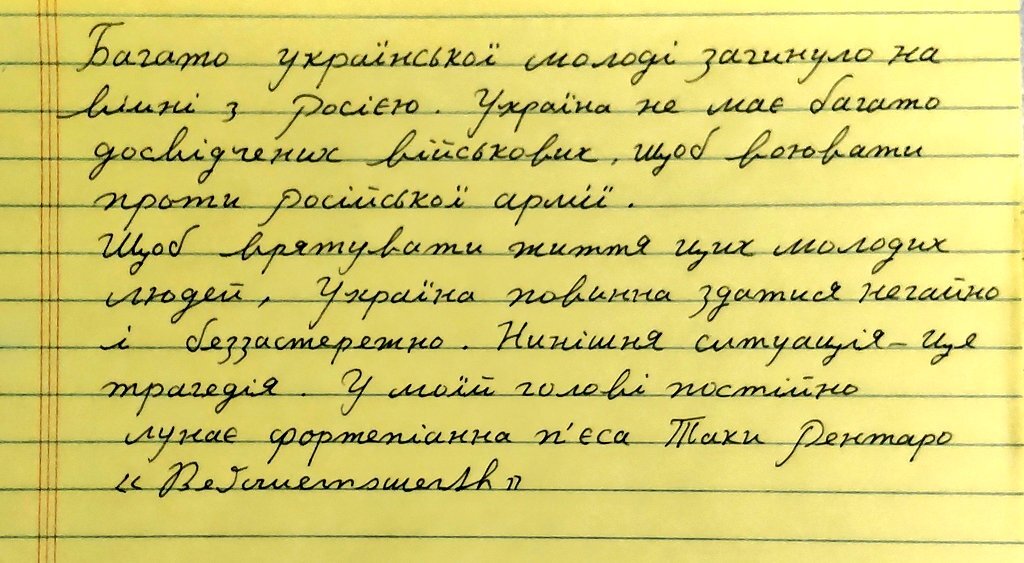 Багато української молоді загинуло на
війні з росією. Україна не має багато
досвідчених військових, щоб воювати
проти російської армії.
Щоб врятувати життя цих молодих
людей, Україна повинна здатися негайно
і беззастережно. Нинішня ситуація – це
трагедія. У моїй голові постійно
лунає фортепіанна п'єса Таки Рентаро